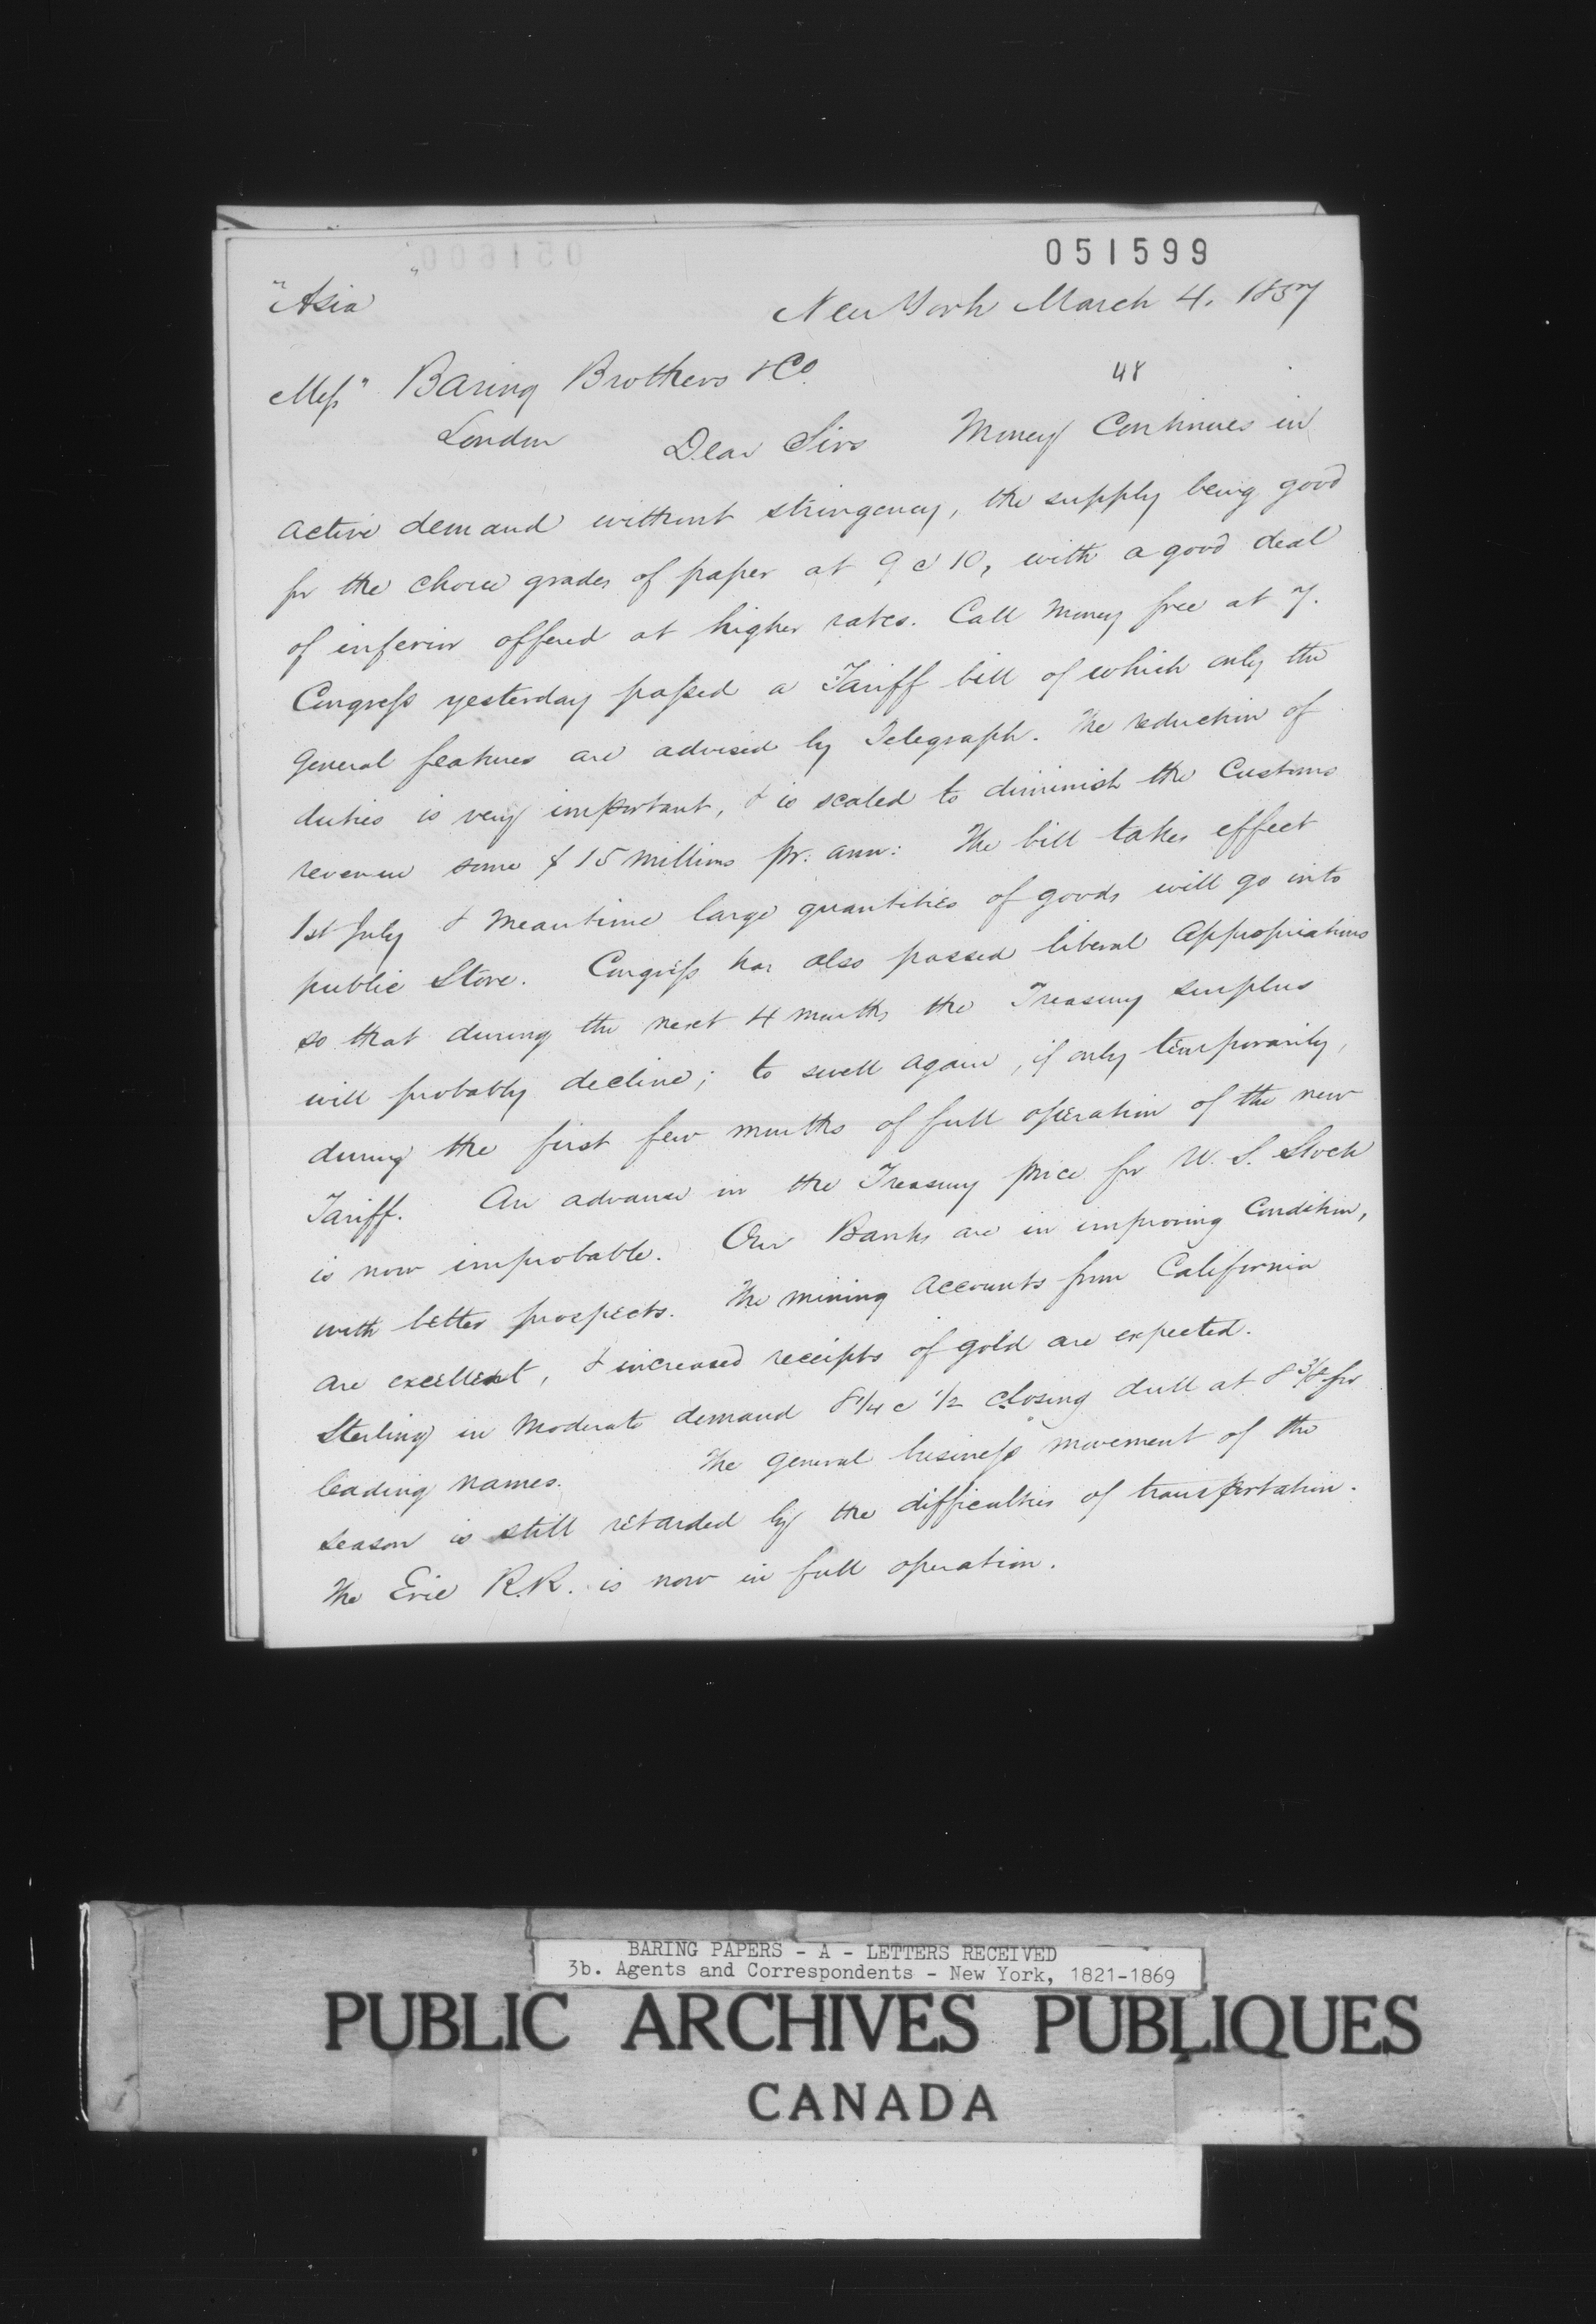 051599
"Asia"
New York March 4. 1857
Mess" Baring Brothers & Co.
48
London Dear Sirs Money Continues in
active demand without stringency, the supply being good
for the choice grades of paper at 9 a 10, with a good deal
of inferior offered at higher rates. Call Money free at 7.
Congress yesterday passed a Tariff bill of which only the
General features are advised by Telegraph. The reduction of
duties is very important, & is scaled to diminish the Customs
revenue some $15 millions pr: ann: The bill takes effect
1st July & meantime large quantities of goods will go into
public Store. Congress has also passed liberal appropriations
so that during the next 4 months the Treasury surplus
will probably decline; to swell again, if only temporarily,
during the first few months of full operation of the new
Tariff. An advance in the Treasury price for U. S. Stock
is now improbable. Our Banks are in improving condition,
with better prospects. The mining accounts from California
are excellent, & increased receipts of gold are expected.
Sterling in moderate demand 8 1/4 a 1/2 closing dull at 8 3/8 for
leading names. The general business movement of the
season is still retarded by the difficulties of transportation.
The Erie R.R. is now in full operation.
BARING PAPERS - A - LETTERS RECEIVED
3b. Agents and Correspondents - New York, 1821-1869
PUBLIC ARCHIVES PUBLIQUES
CANADA